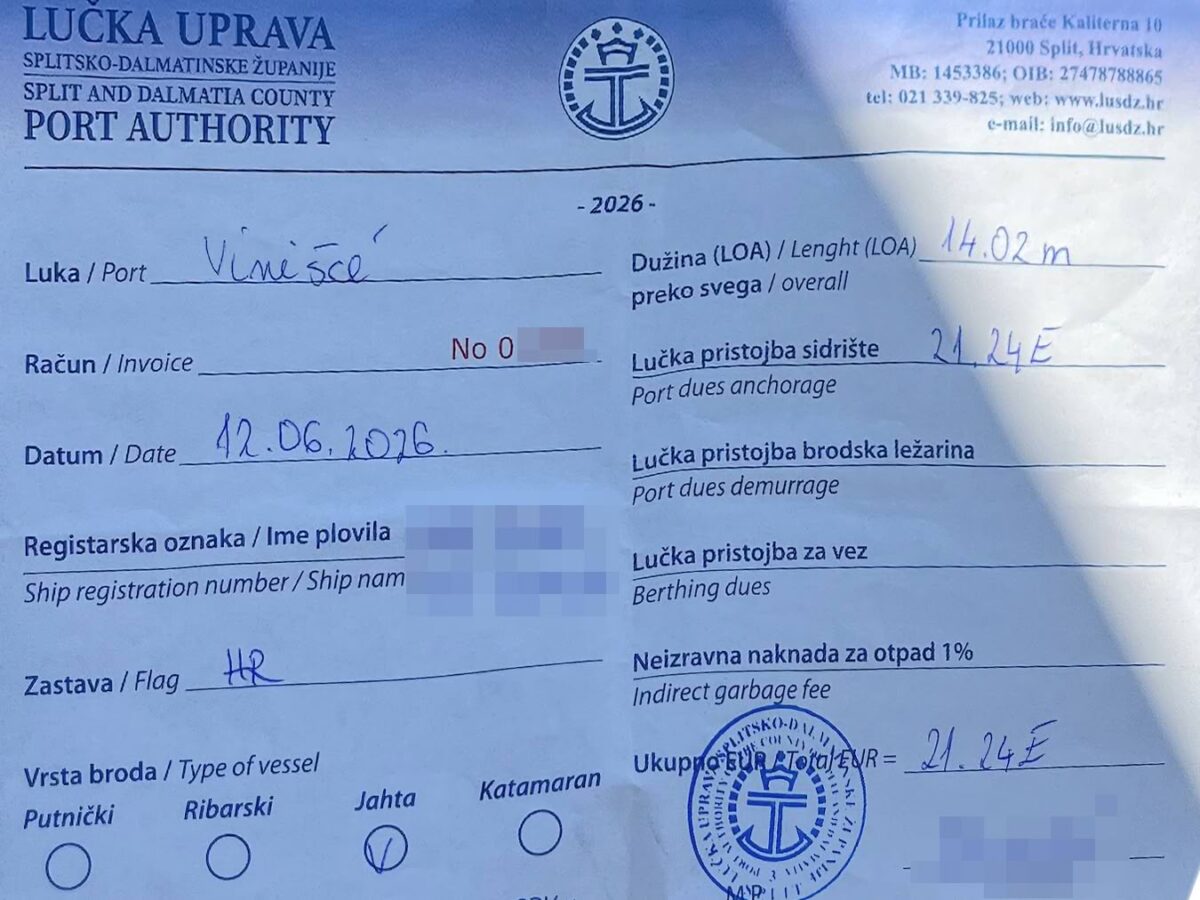 LUČKA UPRAVA
SPLITSKO-DALMATINSKE ŽUPANIJE
SPLIT AND DALMATIA COUNTY
PORT AUTHORITY
Prilaz braće Kaliterna 10
21000 Split, Hrvatska
MB: 1453386; OIB: 27478788865
tel: 021 339-825; web: www.lusdz.hr
e-mail: info@lusdz.hr
- 2026 -
Luka / Port Vinišće
Račun / Invoice No 0
Datum / Date 12.06.2026.
Registarska oznaka / Ime plovila
Ship registration number / Ship nam
Zastava / Flag HR
Vrsta broda / Type of vessel
Putnički Ribarski Jahta Katamaran
Dužina (LOA) / Lenght (LOA) 14.02 m
preko svega / overall
Lučka pristojba sidrište 21.24 E
Port dues anchorage
Lučka pristojba brodska ležarina
Port dues demurrage
Lučka pristojba za vez
Berthing dues
Neizravna naknada za otpad 1%
Indirect garbage fee
Ukupno EUR / Total EUR = 21.24 E